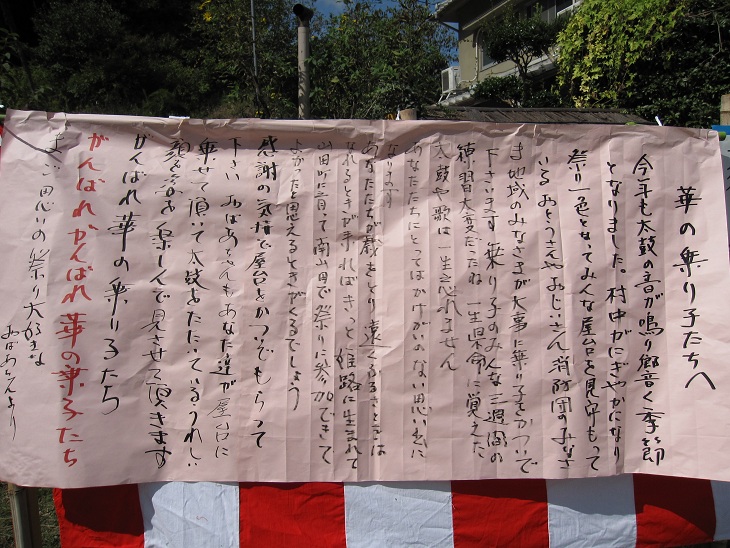 華の乗り子たちへ
今年も太鼓の音が鳴り響く季節
となりました。村中がにぎやかになり
祭り一色となってみんな屋台を見守もって
いる おとうさんやおじいさん 消防団のみなさ
ま 地域のみなさまが大事に乗り子をかついで
下さいます 乗り子のみんな三週間の
練習大変だったね 一生県命に覚えた
太鼓や歌は一生忘れません
あなたたちにとってはかけがいのない思い出に
なります
あなたたちが歳をとり 遠くふるさとをは
なれるときが来ればきっと 姫路に生まれて
山田町に育って南山田で祭りに参加できて
よかったと思えるときがくるでしょう
感謝の気持で屋台をかついでもらって
下さい おばあちゃんもあなた達が屋台に
乗せて頂いて太鼓をたたいているうれしい
顔を 楽しんで見させて頂きます
がんばれ 華の乗り子たち
がんばれがんばれ 華の乗子たち
まご思いの祭り大好きな
おばあちゃんより